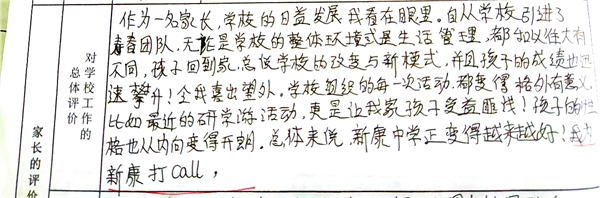 作为一名家长，学校的日益发展我看在眼里。自从学校引进了
青团队，无论是学校的整体环境或是生活管理，都和以往大有
不同，孩子回到家总说学校的改变与新模式，并且孩子的成绩也迅
速攀升！令我喜出望外。学校组织的每一次活动，都变得格外有意义
比如最近的研学游活动，更是让我家孩子受益匪浅！孩子的性
格也从内向变得开朗。总体来说，新康中学正变得越来越好！我为
新康打call，
对学校工作的
总体评价
家长的评价